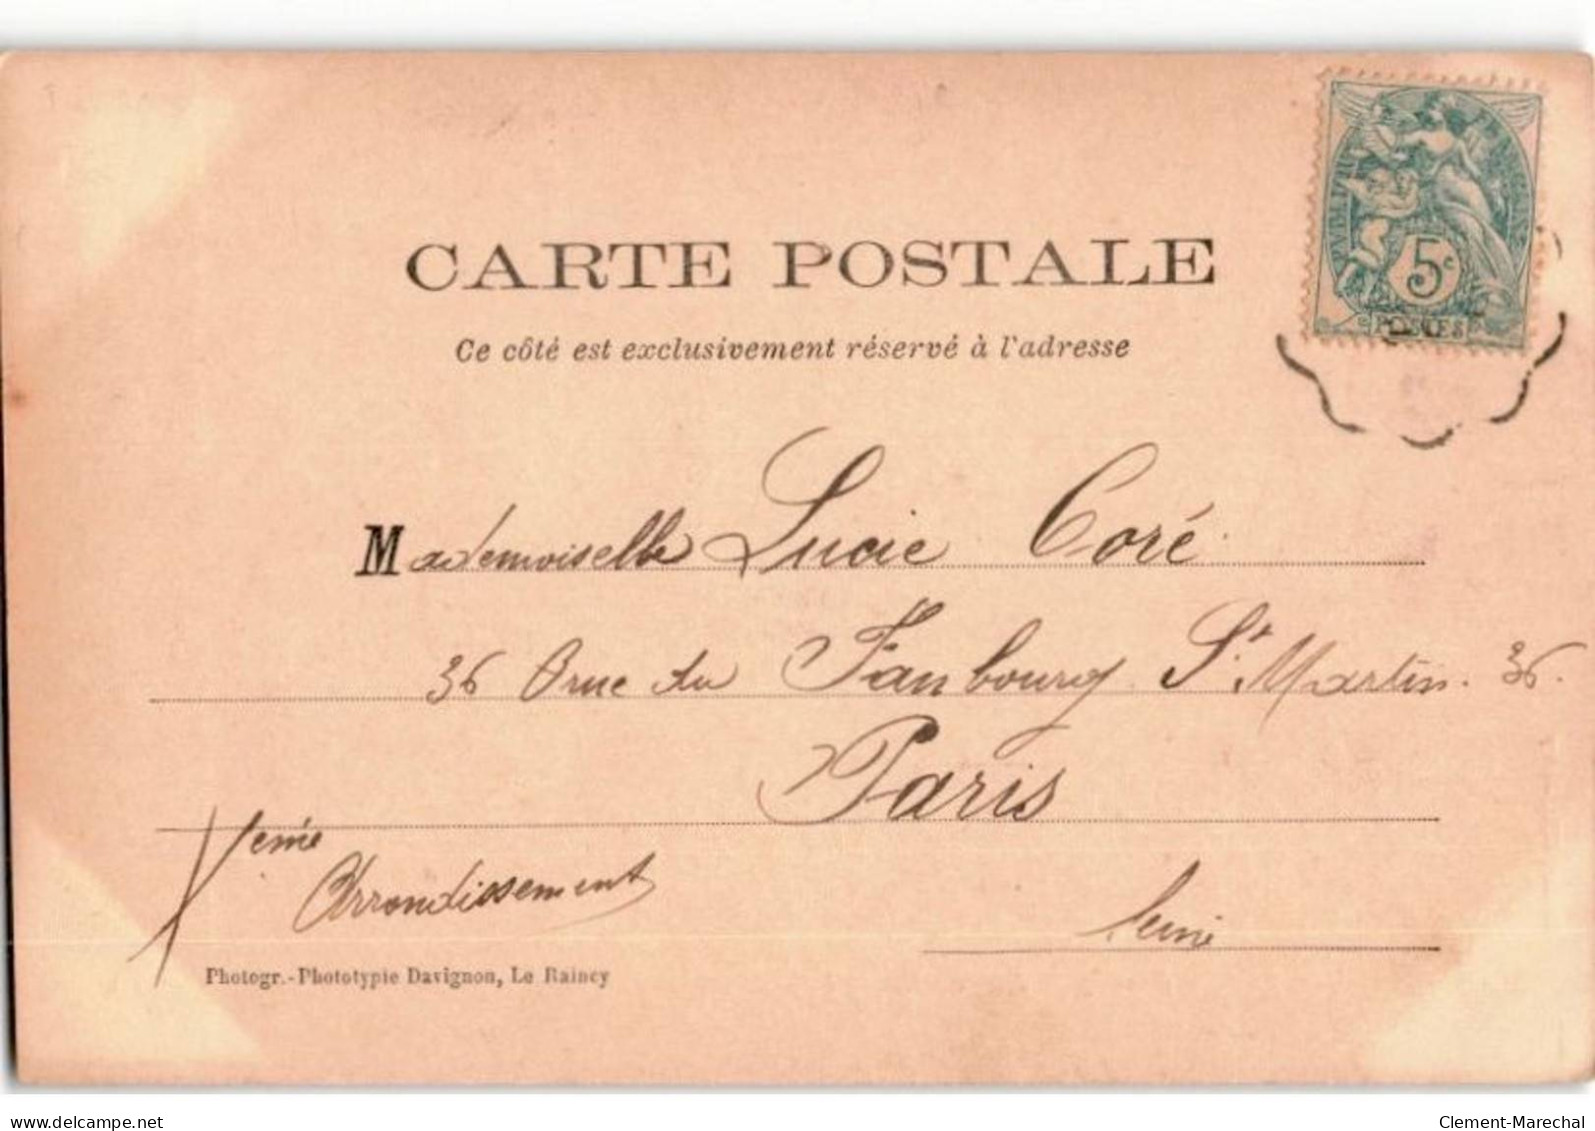 CARTE POSTALE
Ce côté est exclusivement réservé à l'adresse
5c
POSTES
Mademoiselle Lucie Coré
36 rue du Faubourg St Martin. 36.
Paris
Xème
Arrondissement
Seine
Photogr.-Phototypie Davignon, Le Raincy
www.delcampe.net
Clement-Marechal